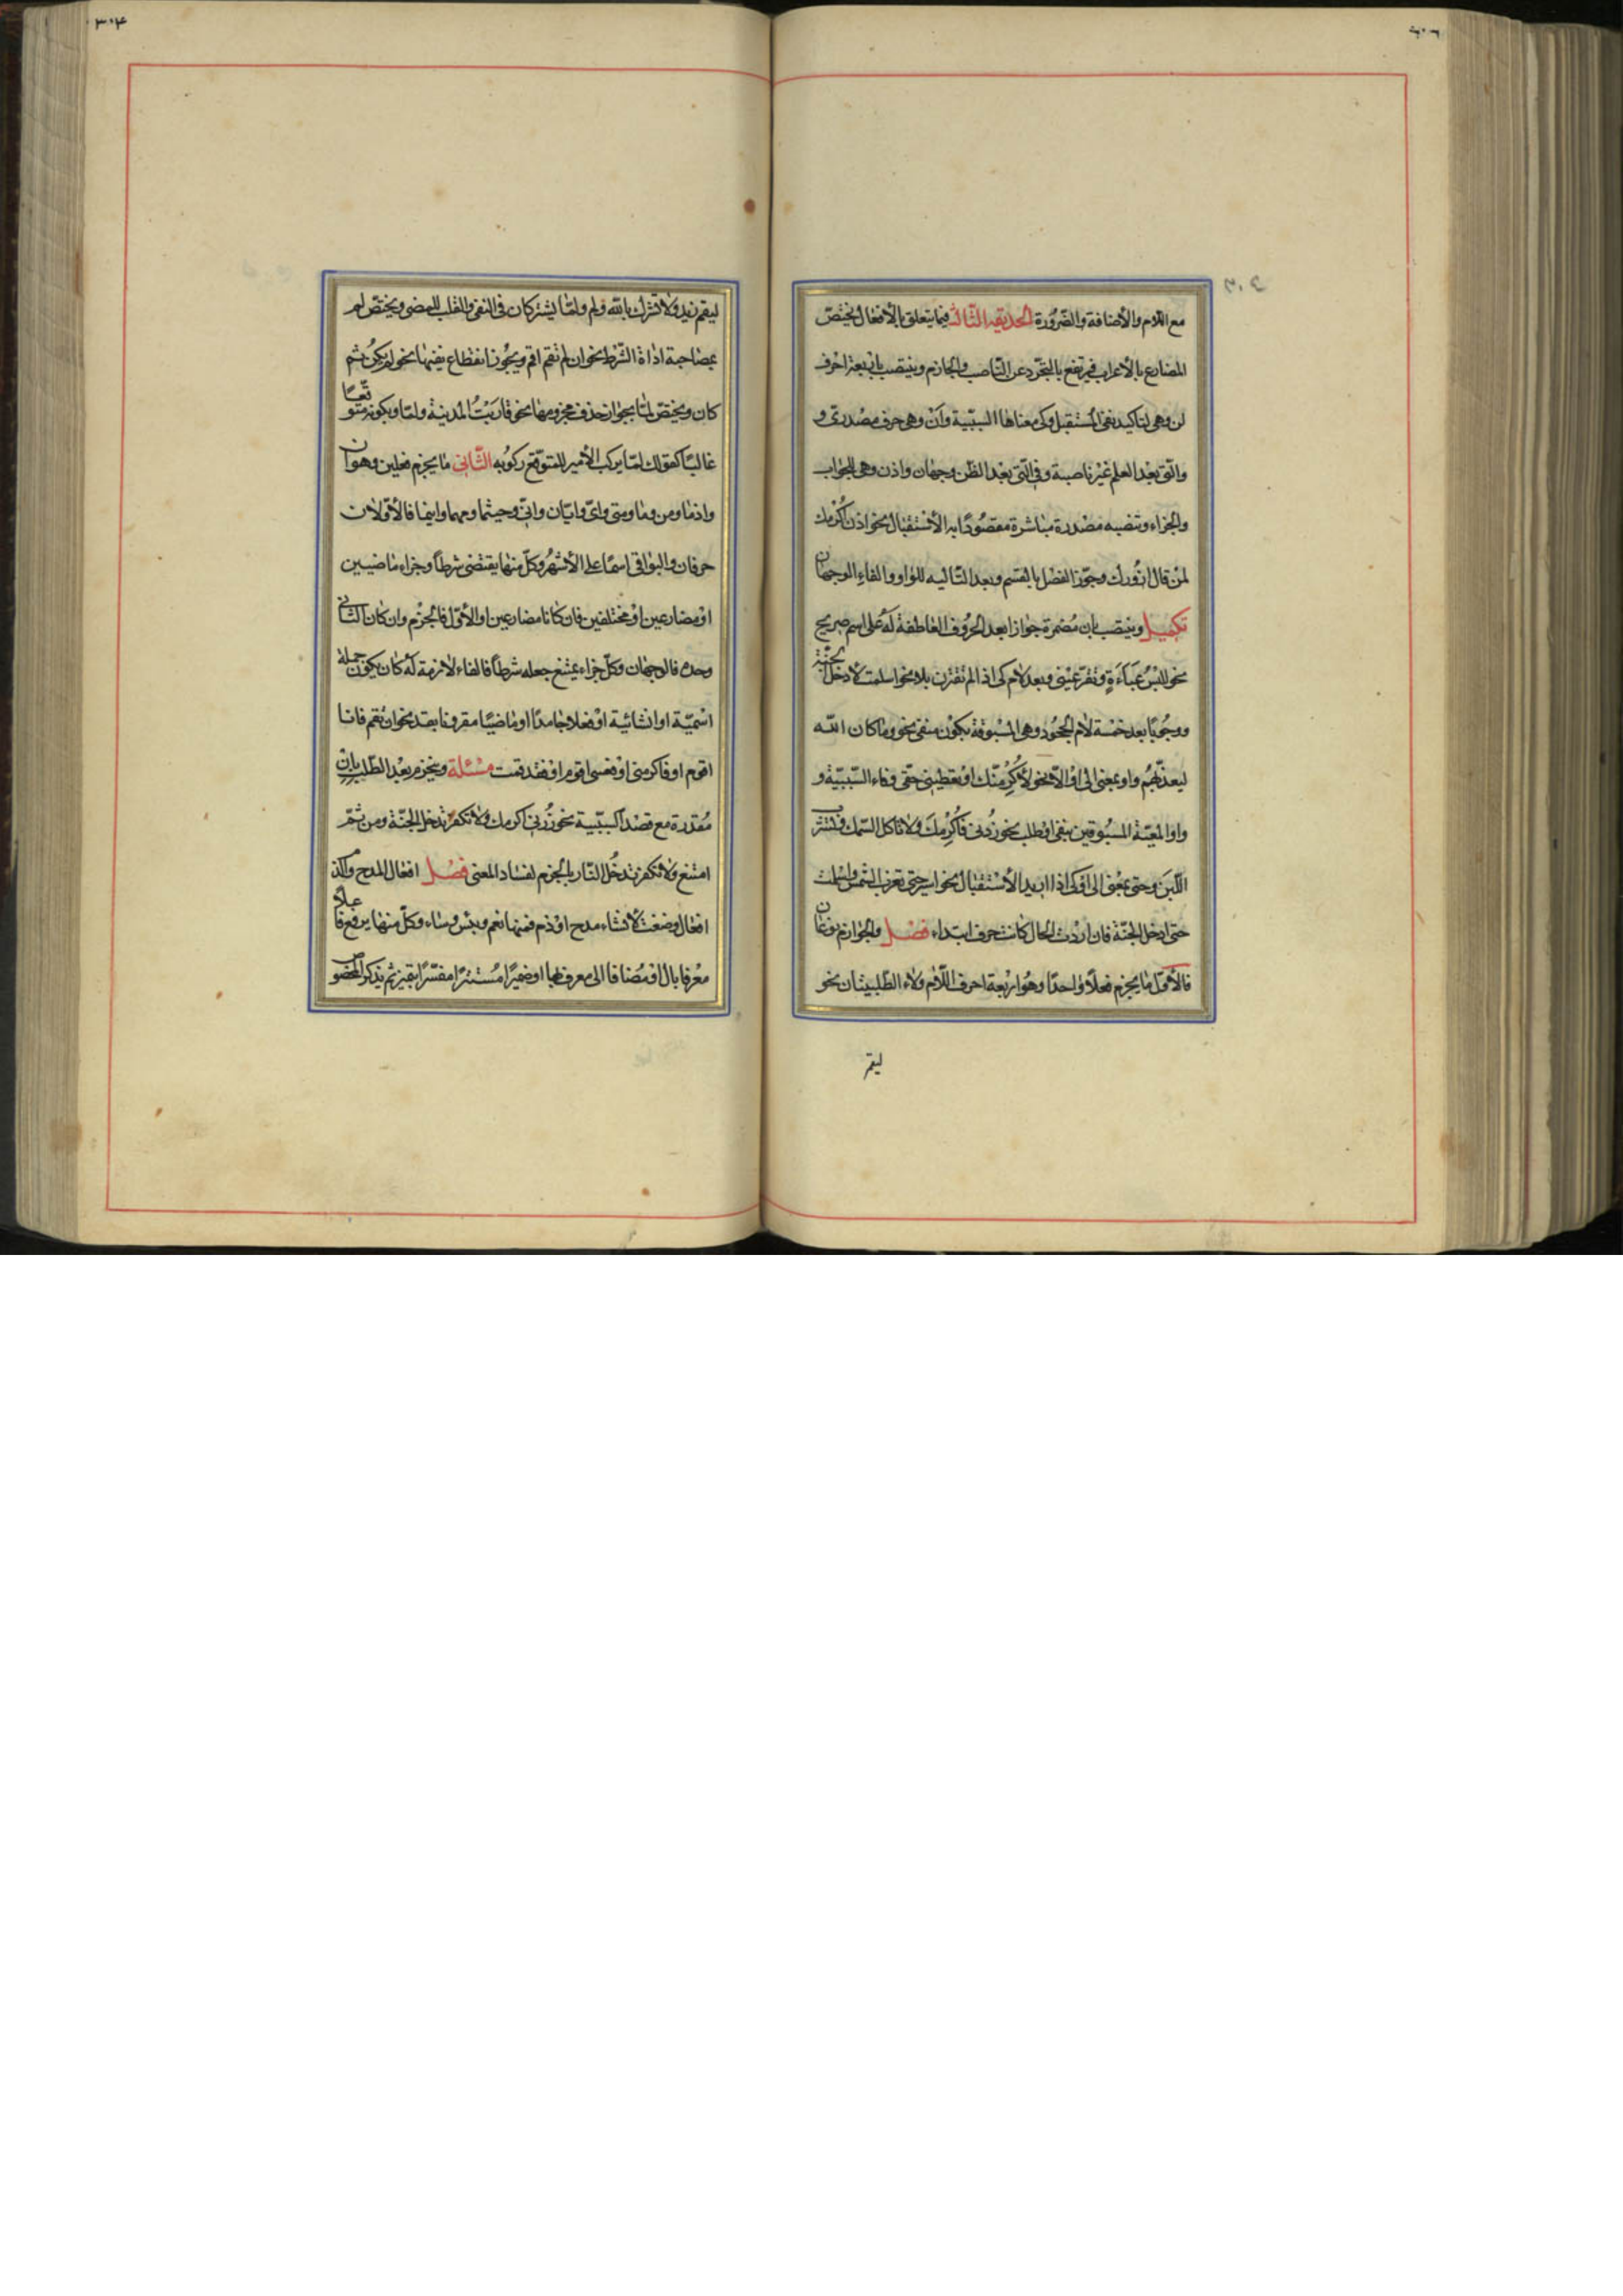 مع اللّام والأضافة والضّرورة الحديقه الثّالثه فيما يتعلق بالأفعال يختصّ
المضارع بالأعراب فيرتفع بالتجرّد عن النّاصب والجازم وينتصب باربعة احرف
لن وهي لتاكيد نفي المستقبل وكي معناها السببيّة وأن وهي حرف مصدريّ و
والّتي بعد العلم غير ناصبة وفي الّتي بعد الظّن وجهان واذن وهي للجواب
والجزاء وتنصبه مصدرة مباشرة مقصودًا به الأستقبال نحو اذن اكرمك
لمن قال ازورك وجوّز الفصل بالقسم وبعد التّاليه للواو والفاء الوجهان
تكميل وينتصب بان مضمرة جوازا بعد الحروف العاطفة له على اسم صريح
نحو للبس عباءة وتقرّ عيني وبعد لام كي اذا لم تقترن بلا نحو اسلمت لأدخل الجنّة
ووجوبًا بعد خمسة لام الجحود وهي المسبوقة بكون منفي نحو وما كان الله
ليعذّبهم واو بمعنى الى او الّا نحو لأكرمنّك او تعطيني حقّي وفاء السّببيّة و
واو المعيّة المسبوقين بنفي او طلب نحو زرني فاكرمك ولا تاكل السّمك وتشرب
اللّبن وحتى بمعنى الى او كي اذا اريد الأستقبال نحو اسير حتى تغرب الشّمس واسلمت
حتى ادخل الجنّة فان اردت الحال كانت حرف ابتداء فصل والجوازم نوعان
فالأوّل ما يجزم فعلًا واحدًا وهو اربعة احرف اللّام ولاء الطّلبيتان نحو
ليقم
ليقم زيد ولا تشرك بالله ولم ولمّا يشتركان في النفي والقلب للمضي ويختصّ لم
بمصاحبة اداة الشّرط نحو ان لم تقم اقم ويجوز انقطاع نفيها نحو لم يكن ثم
كان ويختصّ لمّا بجواز حذف مجزومها نحو قاربت المدينة ولمّا وبكونه متوقّعًا
غالبًا كقولك لمّا يركب الأمير للمتوقّع ركوبه الثّاني ما يجزم فعلين وهو ان
واذما ومن وما ومتى واىّ وايّان وانّى وحيثما ومهما واينما فالأوّلان
حرفان والبواقي اسماء على الأشهر وكلّ منها يقتضي شرطًا وجزاء ماضيين
او مضارعين او مختلفين فان كانا مضارعين او الأوّل فالجزم وان كان الثّاني
وحده فالوجهان وكلّ جزاء يمتنع جعله شرطًا فالفاء لازمة له كان يكون جملة
اسميّة او انشائية او فعلا جامدًا او ماضيًا مقرونا بقد نحو ان تقم فانا
اقوم او فاكرمني او فعسى اقوم او فقد قمت مسئلة وينجزم بعد الطّلب بان
مقدرة مع قصد السببّية نحو زرني اكرمك ولا تكفر تدخل الجنّة ومن ثمّ
امتنع ولا تكفر تدخل النّار بالجزم لفساد المعنى فصل افعال المدح والذم
افعال وضعت لأنشاء مدح او ذم فمنها نعم وبئس وساء وكلّ منها يرفع فاعلًا
معرفا بال او مضافا الى معرف بها او ضميرًا مستترًا مفسّرًا بتميز ثم يذكر المخصوص